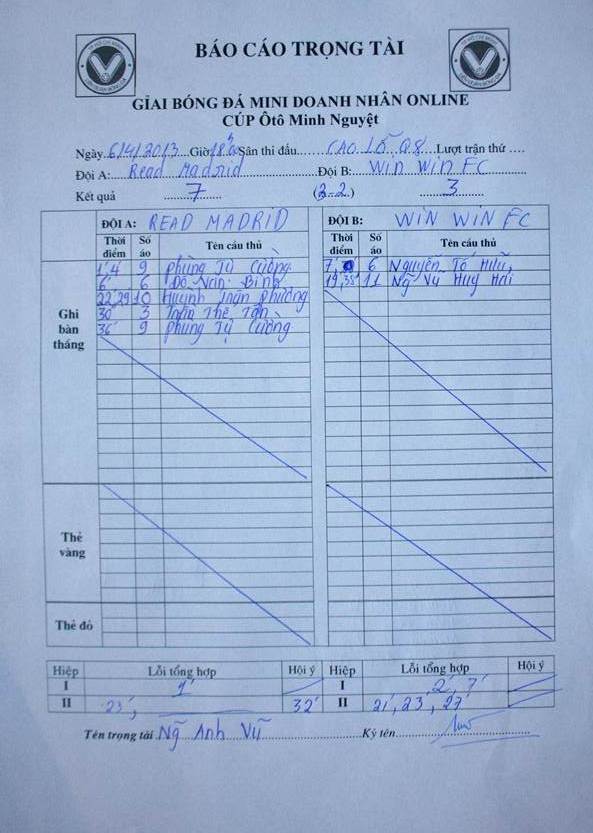 BÁO CÁO TRỌNG TÀI
GIẢI BÓNG ĐÁ MINI DOANH NHÂN ONLINE
CÚP Ôtô Minh Nguyệt
Ngày 6/4/2013 Giờ 18 Sân thi đấu CAO LỖ Q8 Lượt trận thứ
Đội A: Read Madrid Đội B: Win Win FC
Kết quả 7 (3-2) 3
ĐỘI A: READ MADRID ĐỘI B: WIN WIN FC
Thời điểm Số áo Tên cầu thủ Thời điểm Số áo Tên cầu thủ
Ghi bàn thắng
1', 4' 9 Phùng Tự Cường 7', 6 Nguyễn Tố Hữu
6' 6 Đỗ Văn Bình 19', 35' 11 Ng Vũ Huy Hải
22', 29' 10 Huỳnh Tuấn Phương
30' 3 Trần Thế Tân
36' 9 Phùng Tự Cường
Thẻ vàng
Thẻ đỏ
Hiệp Lỗi tổng hợp Hội ý Hiệp Lỗi tổng hợp Hội ý
I 1' I 2', 7'
II 23', 32' II 21', 23', 27'
Tên trọng tài Ng Anh Vũ Ký tên